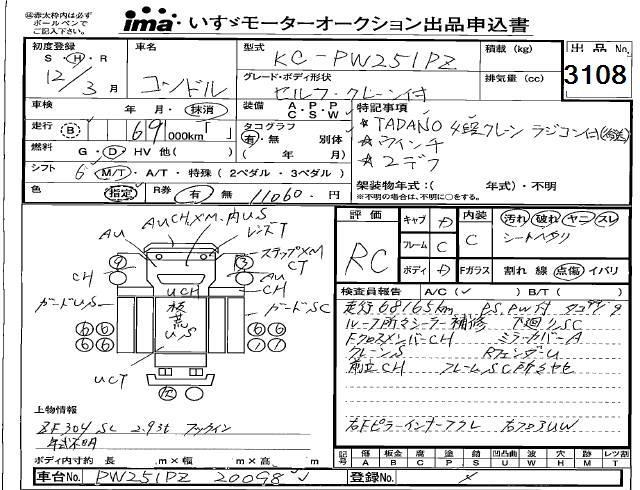 ㊟赤太枠内は必ず
ボールペンで
ご記入下さい。
ima いすゞモーターオークション出品申込書
初度登録
S・H・R
12/3 月
車名
コンドル
型式
KC-PW251PZ
グレード・ボディ形状
セルフ・クレーン付
積載 (kg)
排気量 (cc)
出品 No.
3108
車検 年 月・抹消
走行 (B) 69 000km
燃料 G・D・HV 他( )
シフト 6 M/T・A/T・特殊 (2ペダル・3ペダル)
色 指定
R券 有 無 11060 円
装備 A・P・P
C・S・W
タコグラフ
有・無 別体
( 年 月)
特記事項
★TADANO 4段クレーン ラジコン
★ウインチ
★2デフ
架装物年式:( 年式)・不明
※不明の場合は、不明に○をする。
評価
RC
キャブ D
フレーム C
ボディ D
内装 C
Fガラス
汚れ 破れ ヤニ スレ
シートヘタリ
割れ 線 点傷 イバリ
検査員報告 A/C( ✓ ) B/T( )
走行68165km PS,PW付
補修 下廻りSC
FクロスメンバーCH ミラーカバーA
クレーンS RフェンダーU
CH フレームSC
右Fピラーインナーフフレ 右フロアUW
AU
ACH,XM,内U,S
レンズT
ステップXM
CT
AU
CH
CH
UCH
ガードU,S
ガードSC
板
荒
U,S
UCT
9
13
6 6
6 6
6 6
12
上物情報
ZF304 SC 2.93t フックイン
年式不明
ボディ内寸 長 m×幅 m×高 m
記号
傷 A 板金 B 腐 C 塗 P 錆 S 凹凸曲 U 波 W 穴 H 跡 M レツ割 T
車台No. PW251PZ 20098
登録No.